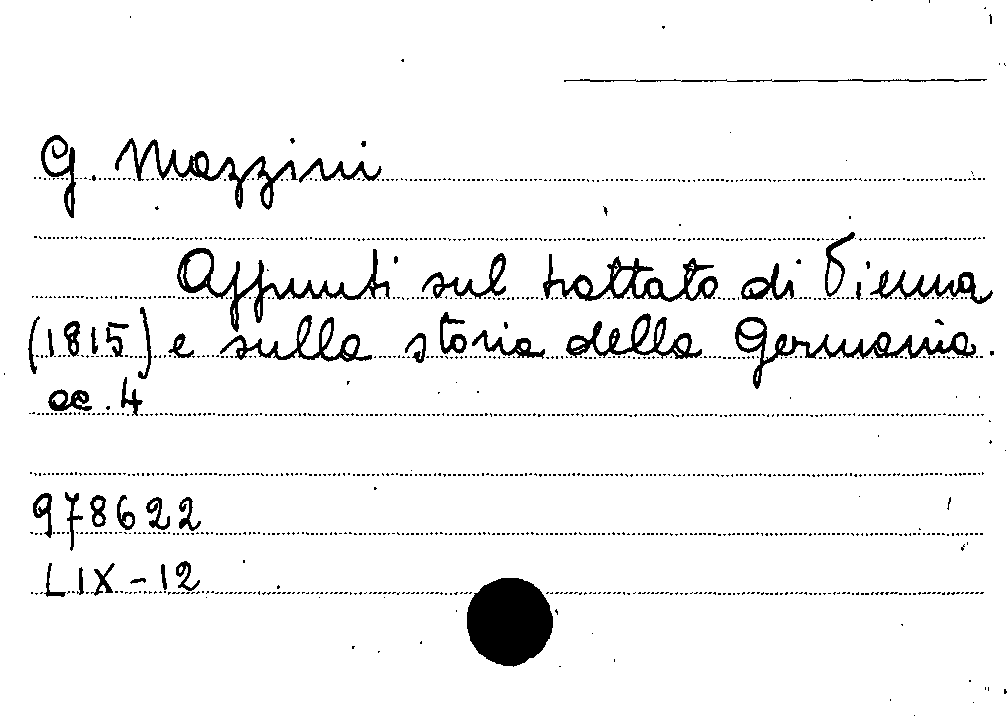 G. Mazzini
Appunti sul trattato di Vienna
(1815) e sulla storia della Germania.
cc. 4
978622
LIX-12